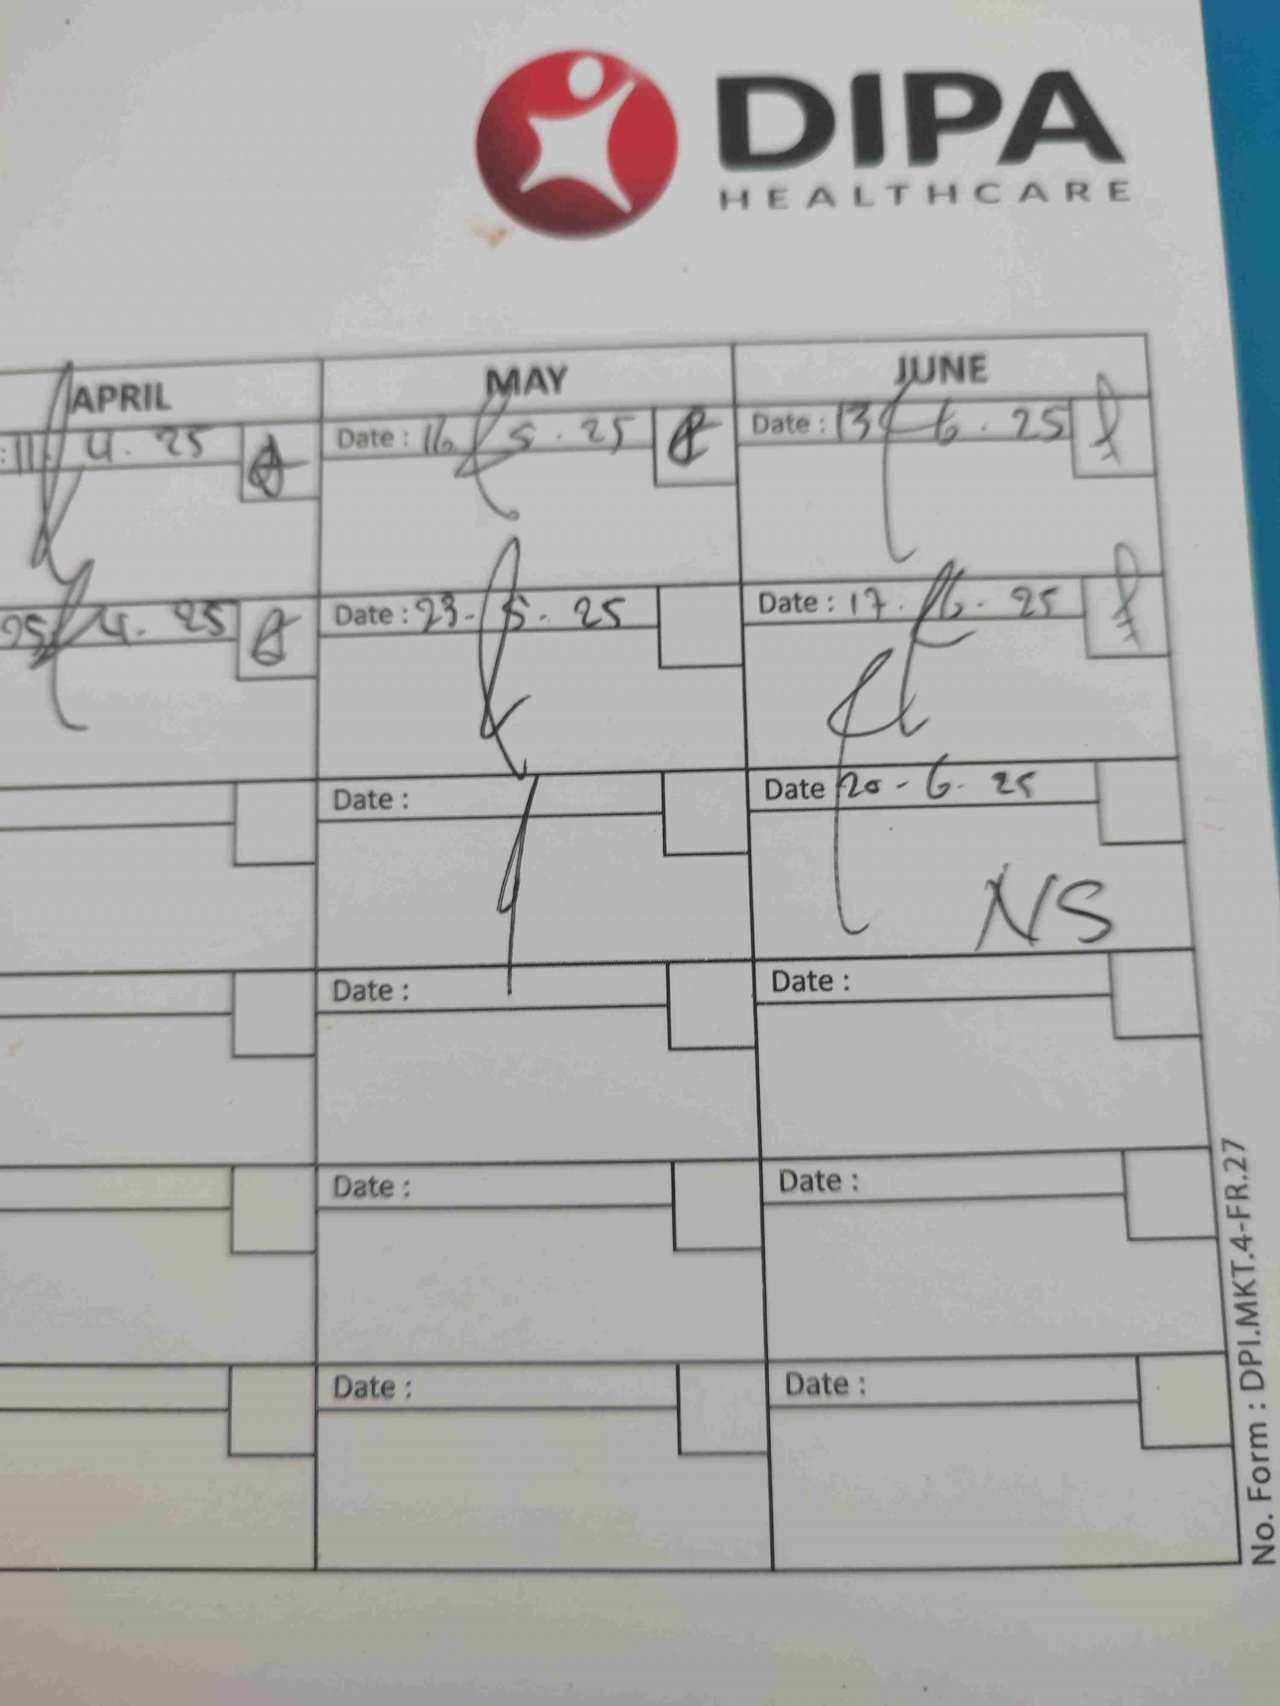 DIPA
HEALTHCARE
APRIL MAY JUNE
: 11. 4. 25 Date : 16. 5. 25 Date : 13 6. 25
25. 4. 25 Date : 23. 5. 25 Date : 17. 6. 25
Date : Date 20 - 6. 25
NS
Date : Date :
Date : Date :
Date : Date :
No. Form : DPI.MKT.4-FR.27